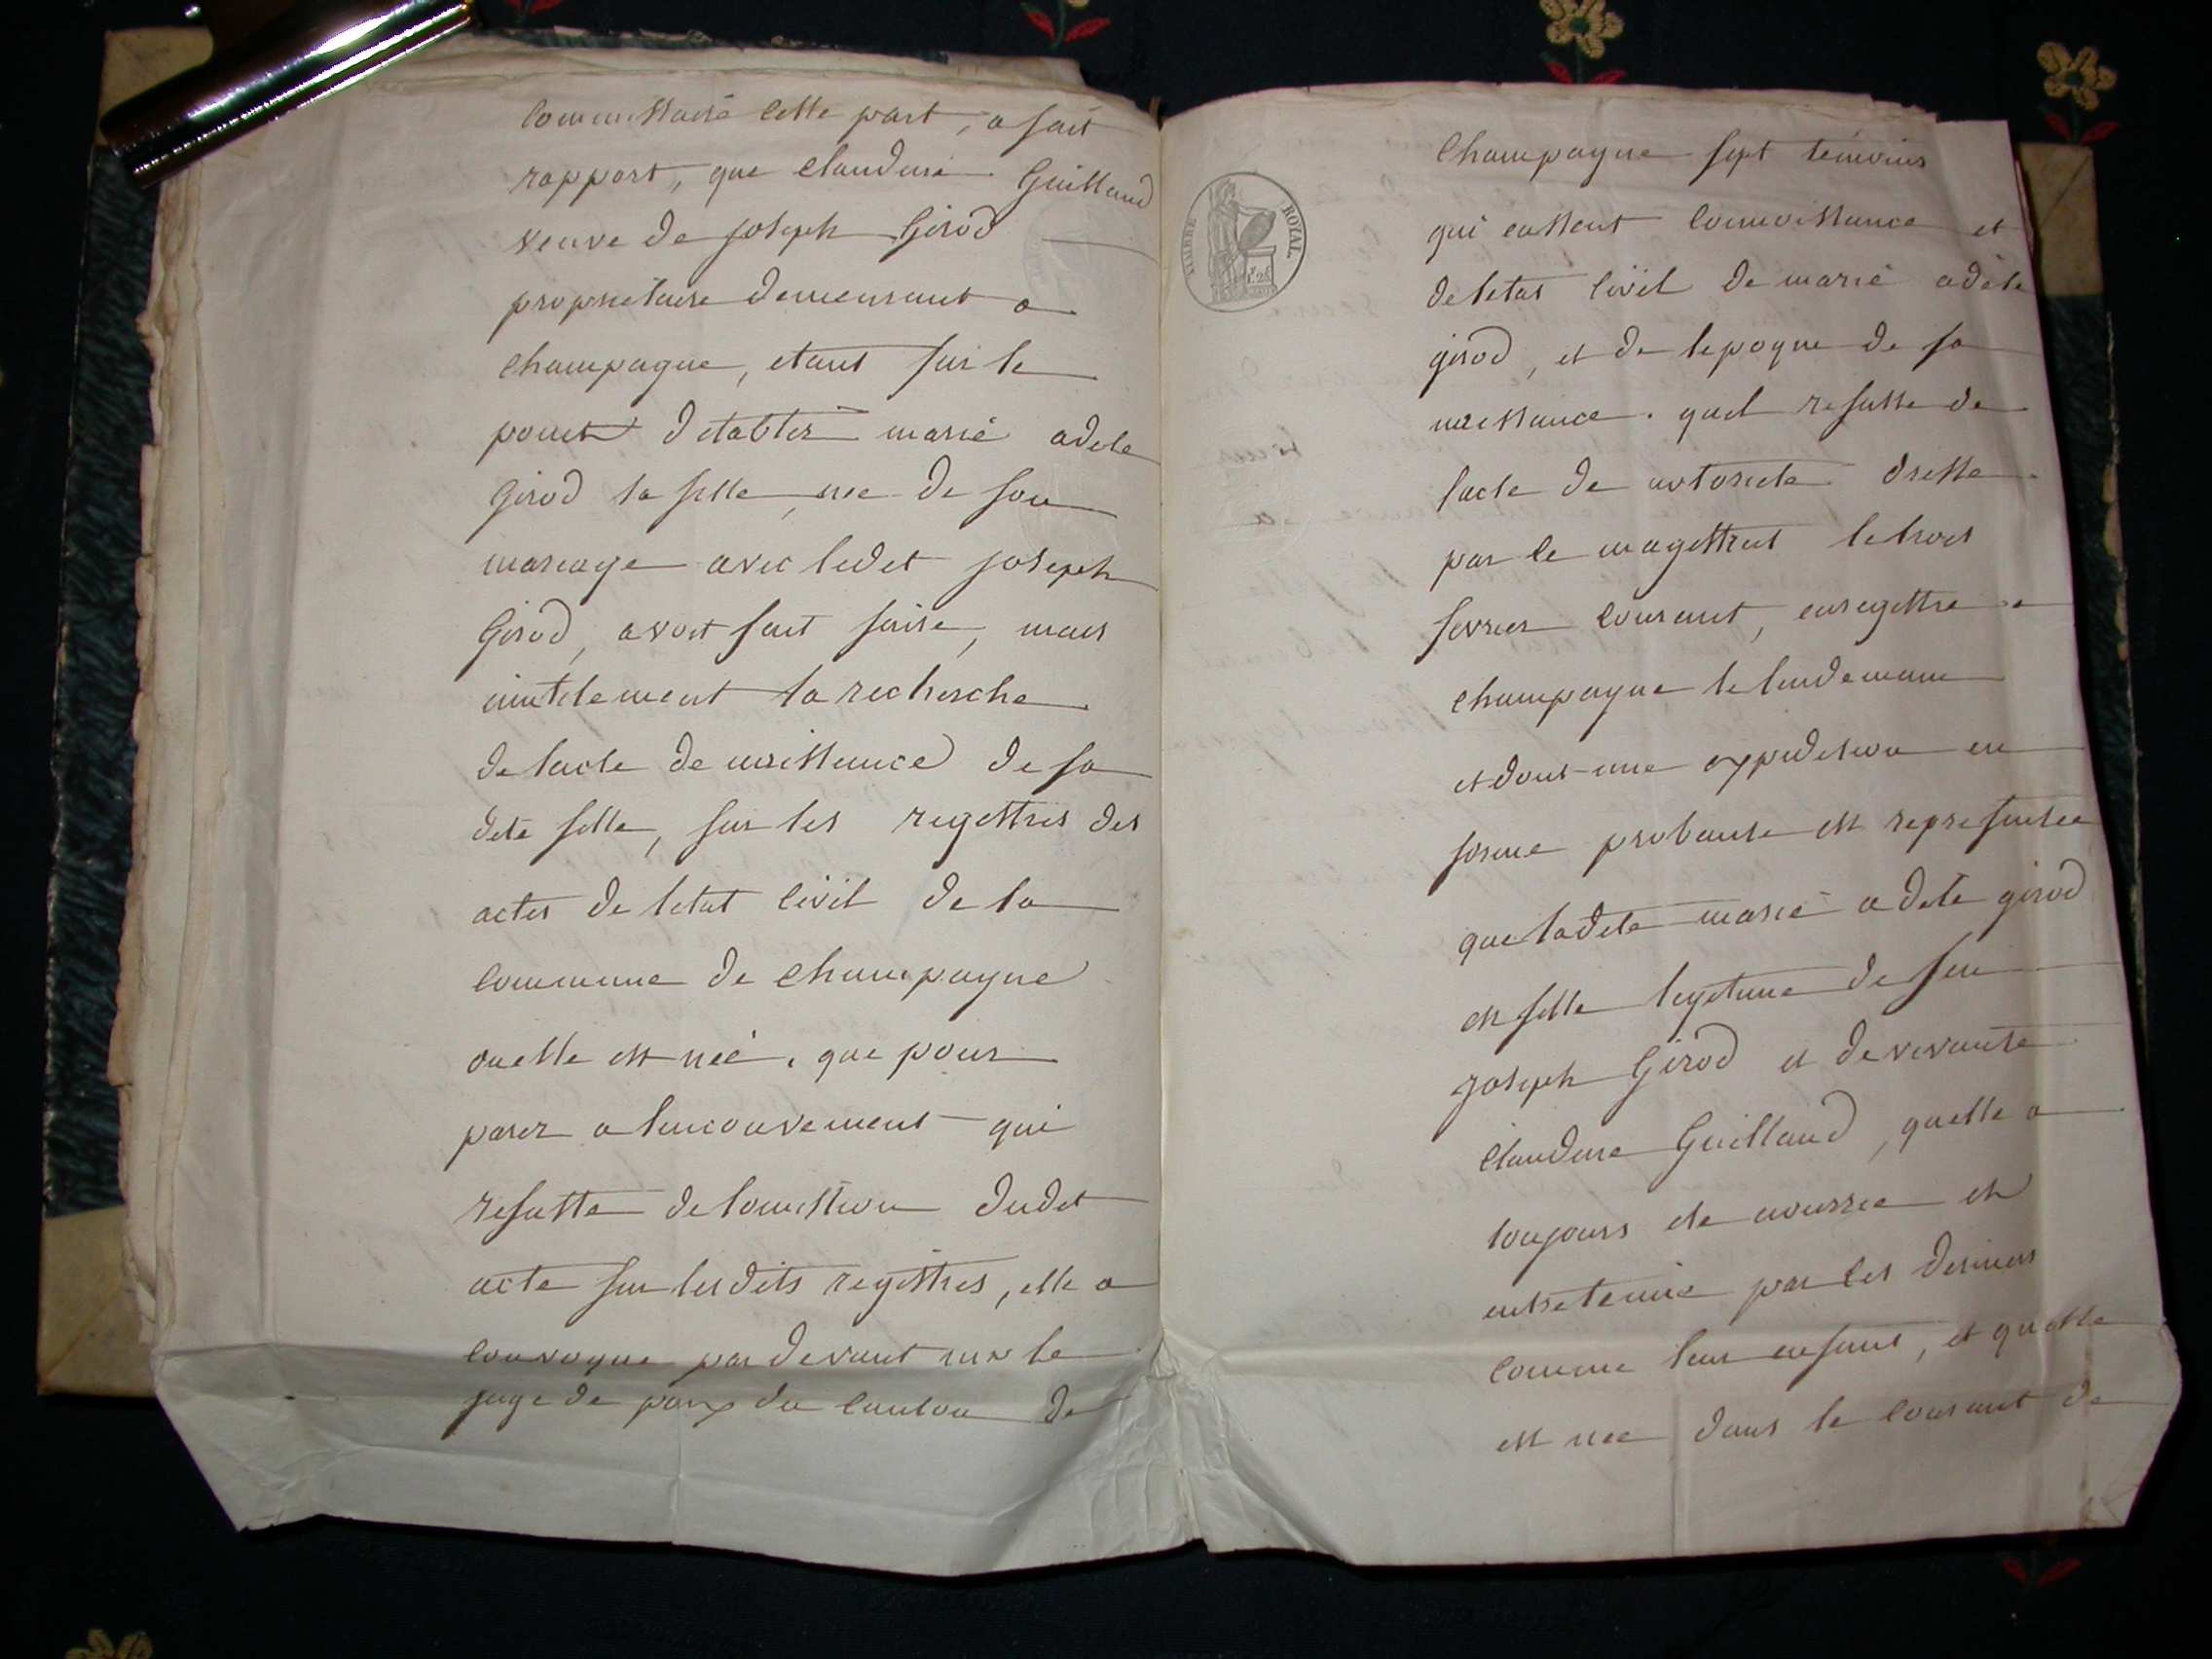 commissaire cette part, a fait
rapport, que claudine Guilland
veuve de joseph Girod
proprietaire demeurant a
champagne, etant sur le
point detablir marie adele
Girod sa fille, nee de son
mariage avec ledit joseph
Girod, avoit fait faire, mais
inutilement la recherche
de lacte de naissance de sa
dite fille, sur les regettres des
actes de letat civil de la
commune de champagne
ou elle est née, que pour
parer a linconvenient qui
resulte de lomission dudit
acte sur les dits registres, elle a
convoque par devant mr le
juge de paix du canton de
TIMBRE ROYAL
1.25
champagne sept témoins
qui eussent connoissance et
de letat civil de marie adèle
girod, et de lepoque de sa
naissance. quil resulte de
lacte de notoriete dresse
par le magistrat le trois
fevrier courant, enregettre a
champagne le lendemain
et dont une expedition en
forme probante est representee
que ladite marie adele girod
est fille legitime de feu
joseph Girod et de vivante
claudine Guilland, quelle a
toujours ete nourrie et
entretenue par ces derniers
comme leur enfant, et quelle
est nee dans le courant de